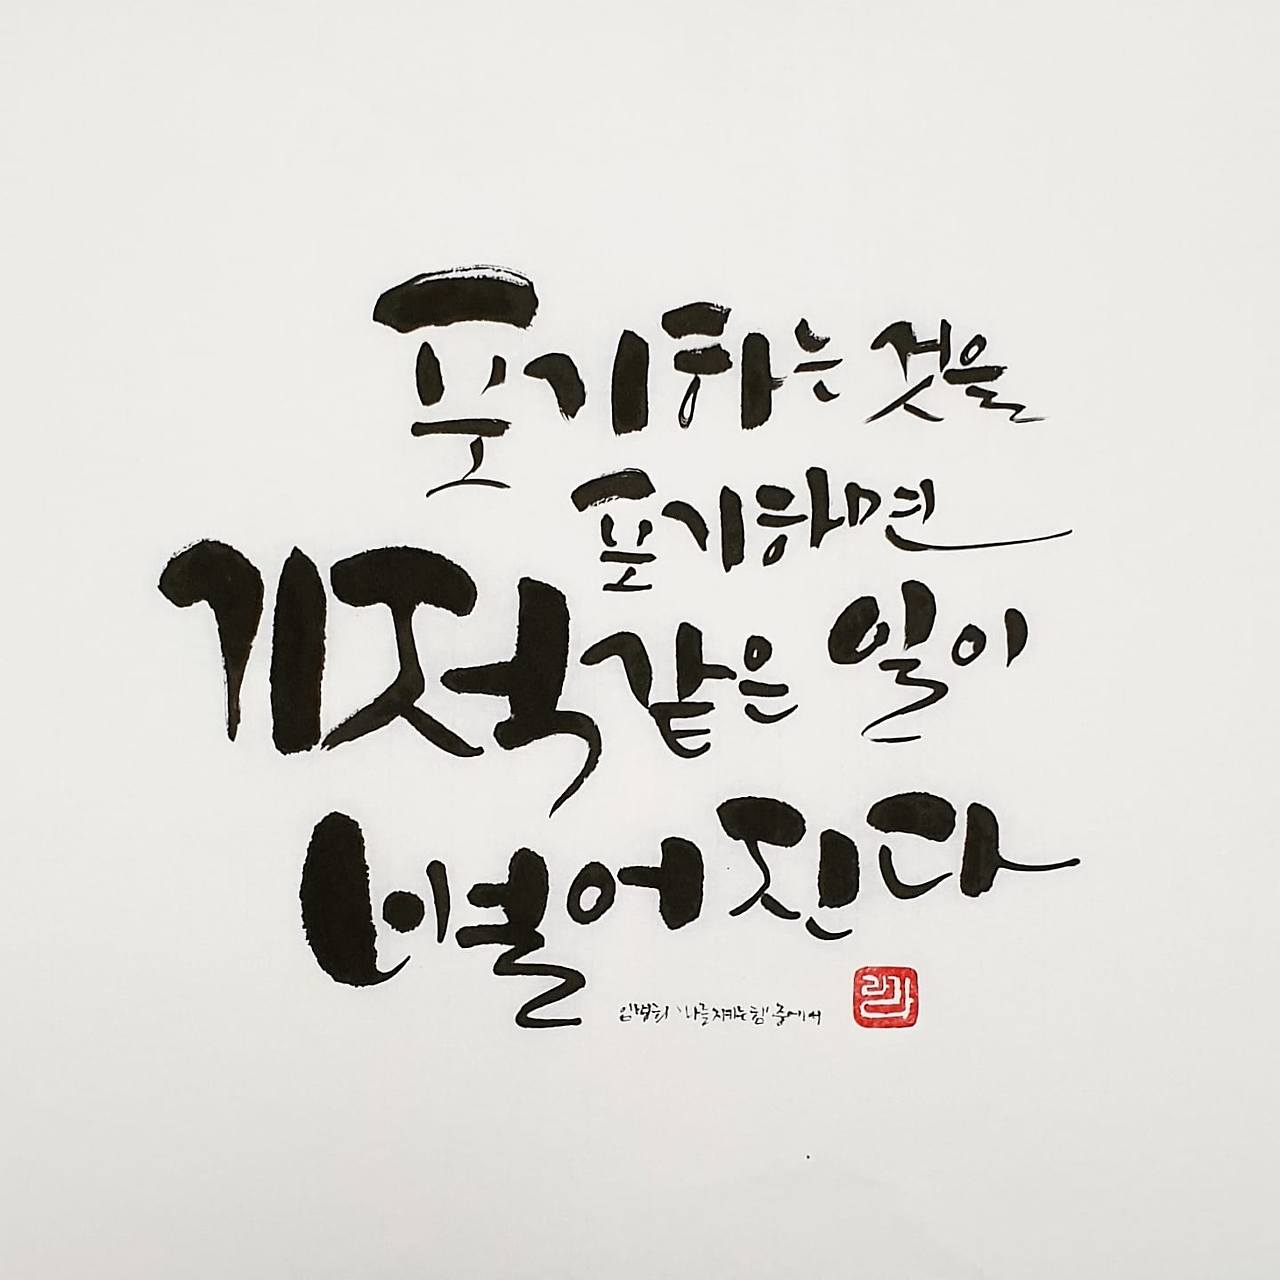 포기하는 것을
포기하면
기적같은 일이
벌어진다
임병희 '나를 지키는 힘' 중에서